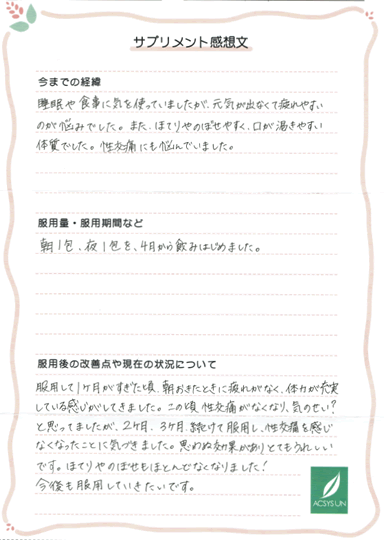 サプリメント感想文
今までの経緯
睡眠や食事に気を使っていましたが、元気が出なくて疲れやすい
のが悩みでした。また、ほてりやのぼせやすく、口が渇きやすい
体質でした。性交痛にも悩んでいました。
服用量・服用期間など
朝1包、夜1包を、4月から飲みはじめました。
服用後の改善点や現在の状況について
服用して1ヶ月がすぎた頃、朝おきたときに疲れがなく、体力が充実
している感じがしてきました。この頃、性交痛がなくなり、気のせい?
と思ってましたが、2ヶ月、3ヶ月続けて服用し、性交痛を感じ
なくなったことに気づきました。思わぬ効果がありとてもうれしい
です。ほてりやのぼせもほとんどなくなりました!
今後も服用していきたいです。
ACSYS UN